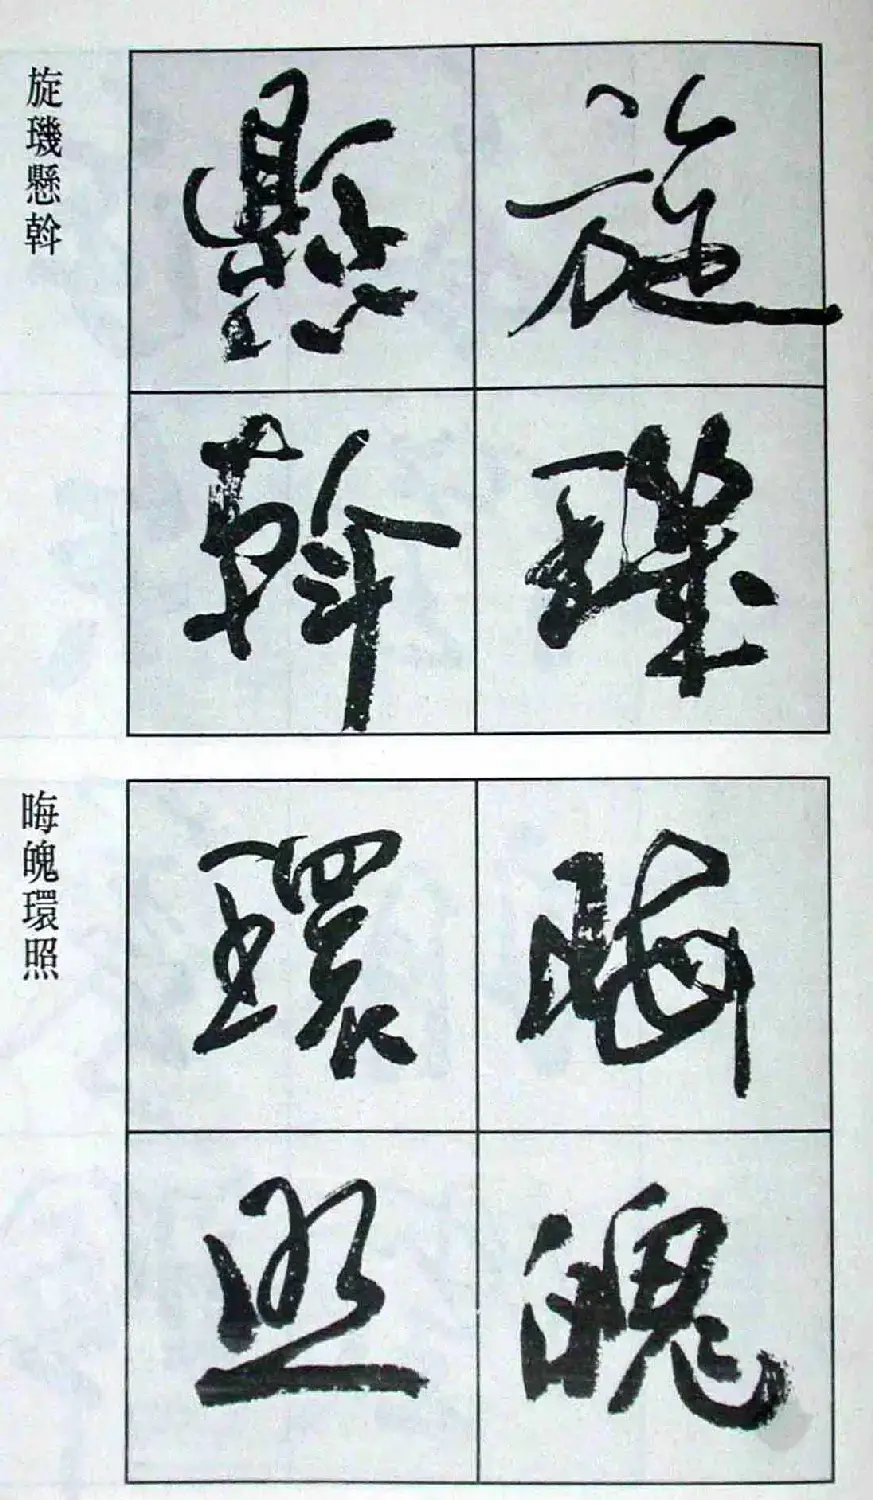 旋璣懸斡
旋璣
懸斡
晦魄環照
晦魄
環照